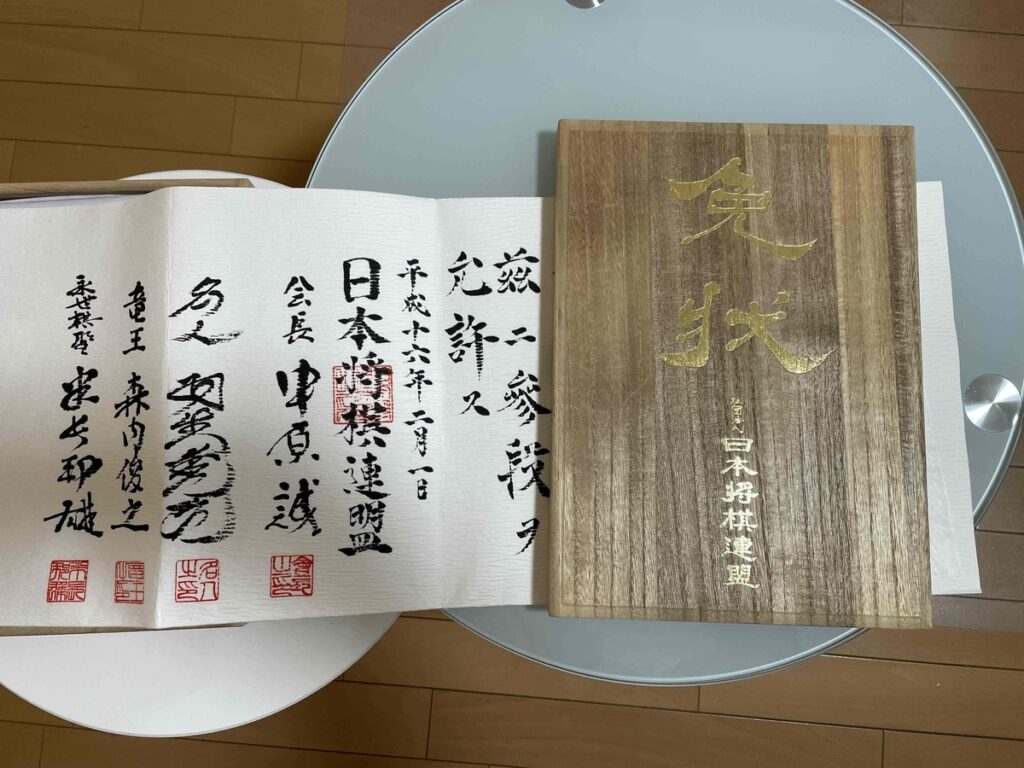 免状
社団法人 日本将棋連盟
茲ニ參段ヲ
允許ス
平成十六年二月一日
日本将棋連盟
会長 中原誠
名人 羽生善治
竜王 森内俊之
永世棋聖 米長邦雄